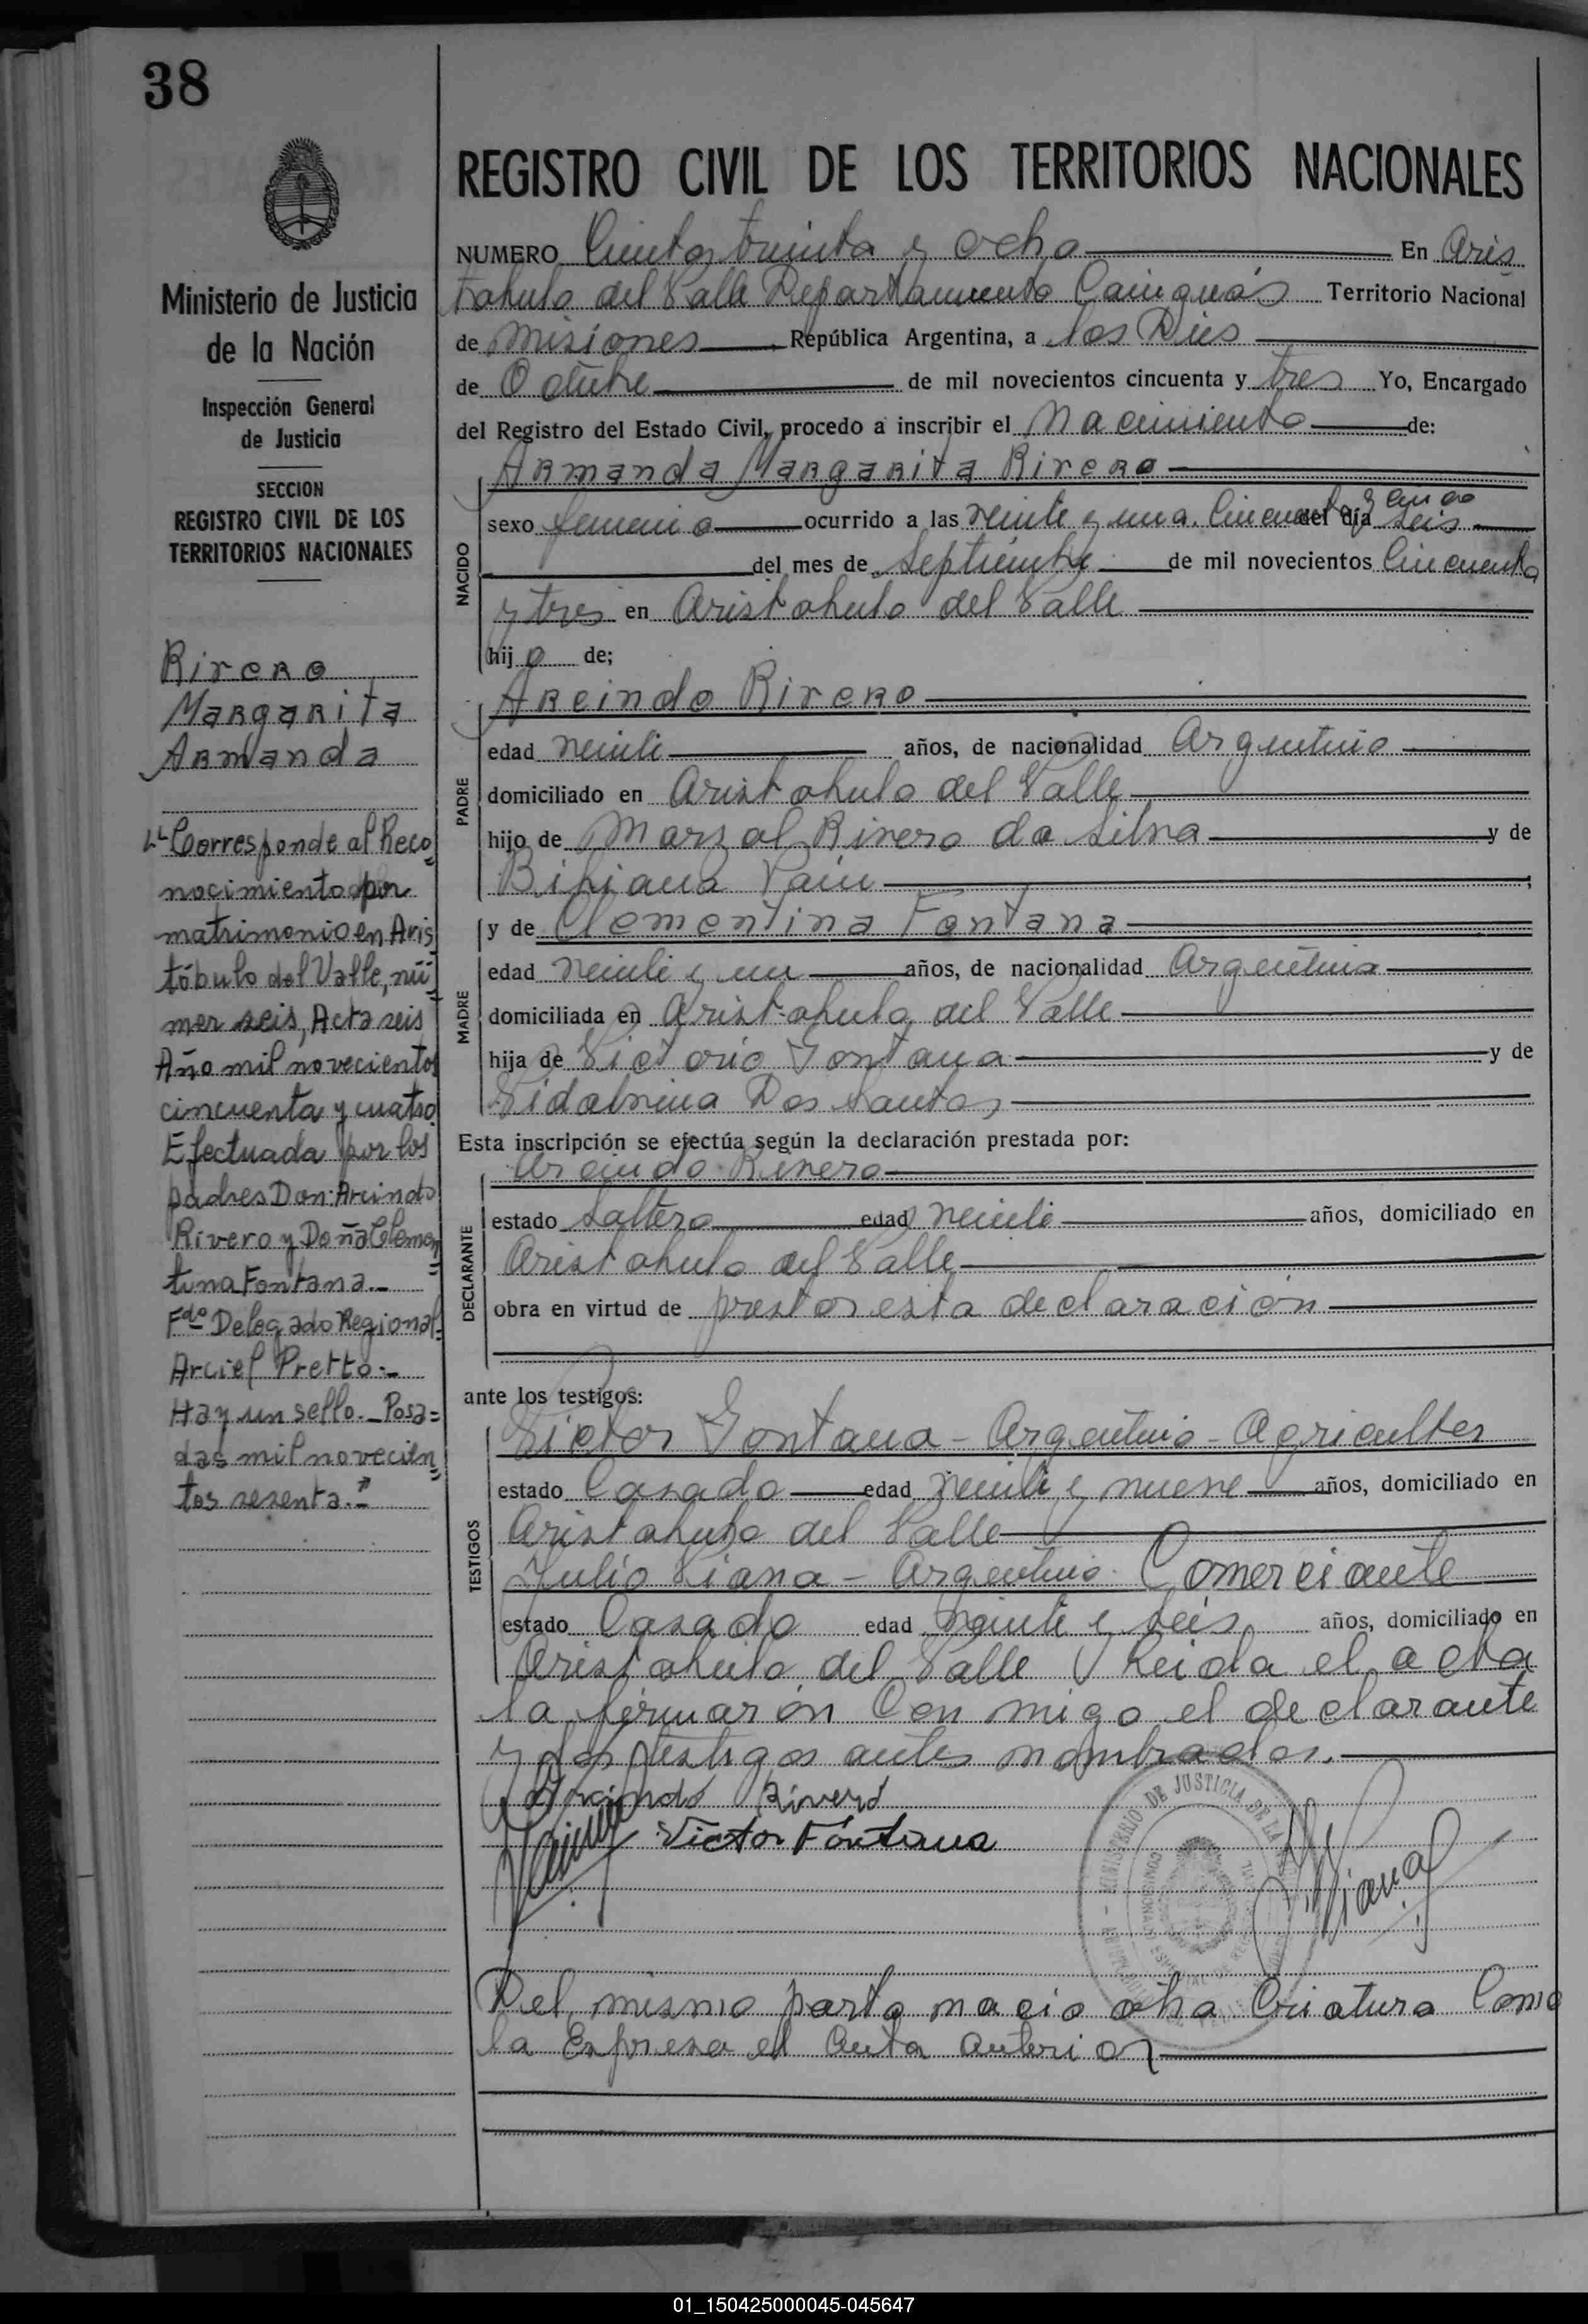 38
Ministerio de Justicia
de la Nación
Inspección General
de Justicia
SECCION
REGISTRO CIVIL DE LOS
TERRITORIOS NACIONALES
Rivero
Margarita
Armanda
Corresponde al Reco=
nocimiento por
matrimonio en Aris
tóbulo del Valle, nú=
mer seis, Acta seis
Año mil novecientos
cincuenta y cuatro.
Efectuada por los
padres Don: Arcindo
Rivero y Doña Clemen=
tina Fontana.-
Fdo Delegado Regional=
Arciel Pretto.-
Hay un sello._ Posa=
das mil novecien=
tos sesenta.-
REGISTRO CIVIL DE LOS TERRITORIOS NACIONALES
NUMERO Ciento treinta y ocho En Aris
tobulo del Valle Departamento Cainguás Territorio Nacional
de Misiones República Argentina, a los Dies
de Octubre de mil novecientos cincuenta y tres Yo, Encargado
del Registro del Estado Civil, procedo a inscribir el Nacimiento de:
NACIDO
Armanda Margarita Rivero
sexo femenio ocurrido a las veinte y una. Cincuenta y cinco del día seis
del mes de Septiembre de mil novecientos Cincuenta
y tres en Aristobulo del Valle
hijo de;
PADRE
Arcindo Rivero
edad veinte años, de nacionalidad Argentino
domiciliado en Aristobulo del Valle
hijo de Marsal Rivero da Silva y de
Bibiana
MADRE
y de Clementina Fontana
edad veinte y un años, de nacionalidad Argentina
domiciliada en Aristobulo del Valle
hija de Victorio Fontana y de
Dos Santos
Esta inscripción se efectúa según la declaración prestada por:
DECLARANTE
Arcindo Rivero
estado Soltero edad veinte años, domiciliado en
Aristobulo del Valle
obra en virtud de prestar esta declaración
ante los testigos:
TESTIGOS
Victor Fontana - Argentino - Agricultor
estado Casado edad veinte y nueve años, domiciliado en
Aristobulo del Valle
Julio Viana - Argentino - Comerciante
estado Casado edad veinte y seis años, domiciliado en
Aristobulo del Valle Leida el acta
la firmarón Con migo el declarante
y los testigos antes nombrados.
Arcindo Rivero
Victor Fontana
Viana
MINISTERIO DE JUSTICIA DE LA
Del mismo parto nacio otra Criatura Como
la Expresa el Auta Anterior
01_150425000045-045647